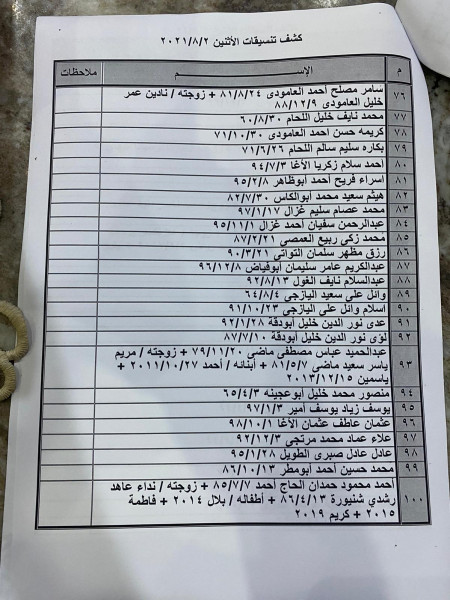 كشف تنسيقات الأثنين ٢٠٢١/٨/٢
م الإســـــم ملاحظات
٧٦ سامر مصلح أحمد العامودى ٨١/٨/٢٤ + زوجته / نادين عمر
خليل العامودى ٨٨/١٢/٩
٧٧ محمد نايف خليل اللحام ٦٠/٨/٣٠
٧٨ كريمه حسن احمد العامودى ٧١/١٠/٣٠
٧٩ بكاره سليم سالم اللحام ٧١/٦/٢٦
٨٠ احمد سلام زكريا الأغا ٩٤/٧/٣
٨١ اسراء فريح احمد ابوظاهر ٩٥/٢/٨
٨٢ هيثم سعيد محمد ابوالكاس ٨٢/٧/٣٠
٨٣ محمد عصام سليم غزال ٩٧/١/١٧
٨٤ عبدالرحمن سفيان أحمد غزال ٩٥/١١/١
٨٥ محمد زكى ربيع العمصى ٨٧/٢/٢١
٨٦ رزق مظهر سلمان التواتى ٩٠/٣/٢١
٨٧ عبدالكريم عامر سليمان أبوفياض ٩٦/١٢/٨
٨٨ عبدالسلام نايف الغول ٩٢/٨/١٣
٨٩ وائل على سعيد اليازجى ٦٤/٨/٤
٩٠ اسلام وائل على اليازجى ٩١/١٠/٢٣
٩١ عدى نور الدين خليل أبودقة ٩٢/١/٢٨
٩٢ لؤى نور الدين خليل ابودقة ٨٧/٧/١٠
٩٣ عبدالحميد عباس مصطفى ماضى ٧٩/١١/٢٠ + زوجته / مريم
ياسر سعيد ماضى ٨١/٥/٧ + أبنائه / أحمد ٢٠١١/١٠/٢٧ +
ياسمين ٢٠١٣/١٢/١٥
٩٤ منصور محمد خليل ابوعجينه ٦٥/٤/٣
٩٥ يوسف زياد يوسف أمير ٩٧/١/٣
٩٦ عثمان عاطف عثمان الأغا ٩٨/١٠/١
٩٧ علاء عماد محمد مرتجى ٩٢/١٢/٣
٩٨ عادل عادل صبرى الطويل ٩٥/١/٢٨
٩٩ محمد حسين أحمد أبومطر ٨٦/١٠/١٣
١٠٠ أحمد محمود حمدان الحاج أحمد ٨٥/٧/٧ + زوجته / نداء عاهد
رشدي شنيورة ٨٦/٤/١٣ + أطفاله / بلال ٢٠١٤ + فاطمة
٢٠١٥ + كريم ٢٠١٩